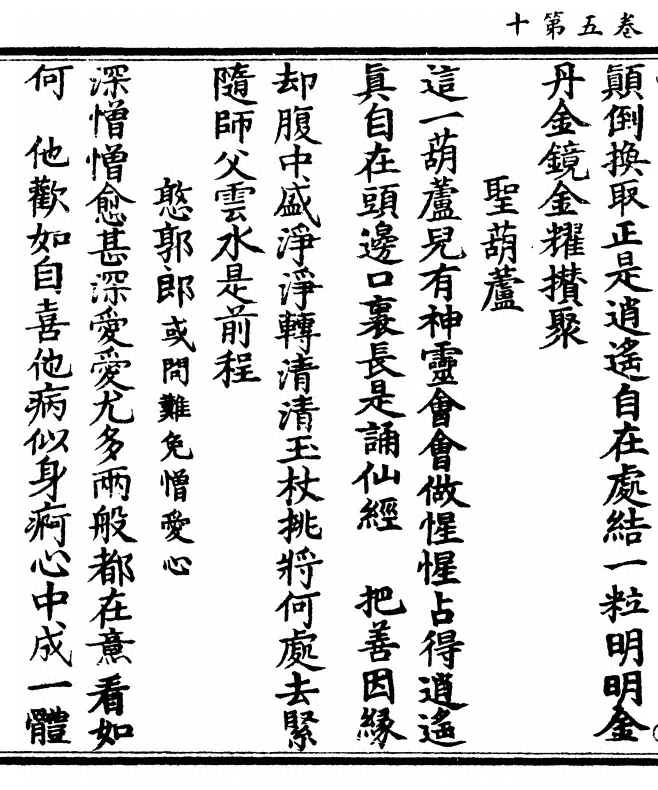 卷五第十
顚倒換取正是逍遙自在處結一粒明明金
丹金鏡金耀攢聚
聖葫蘆
這一葫蘆兒有神靈會會做惺惺占得逍遙
眞自在頭邊口裏長是誦仙經　把善因緣
却腹中盛淨淨轉清清玉杖挑將何處去緊
隨師父雲水是前程
憨郭郎 或問難免憎愛心
深憎憎愈甚深愛愛尤多兩般都在意看如
何　他歡如自喜他病似身痾心中成一體